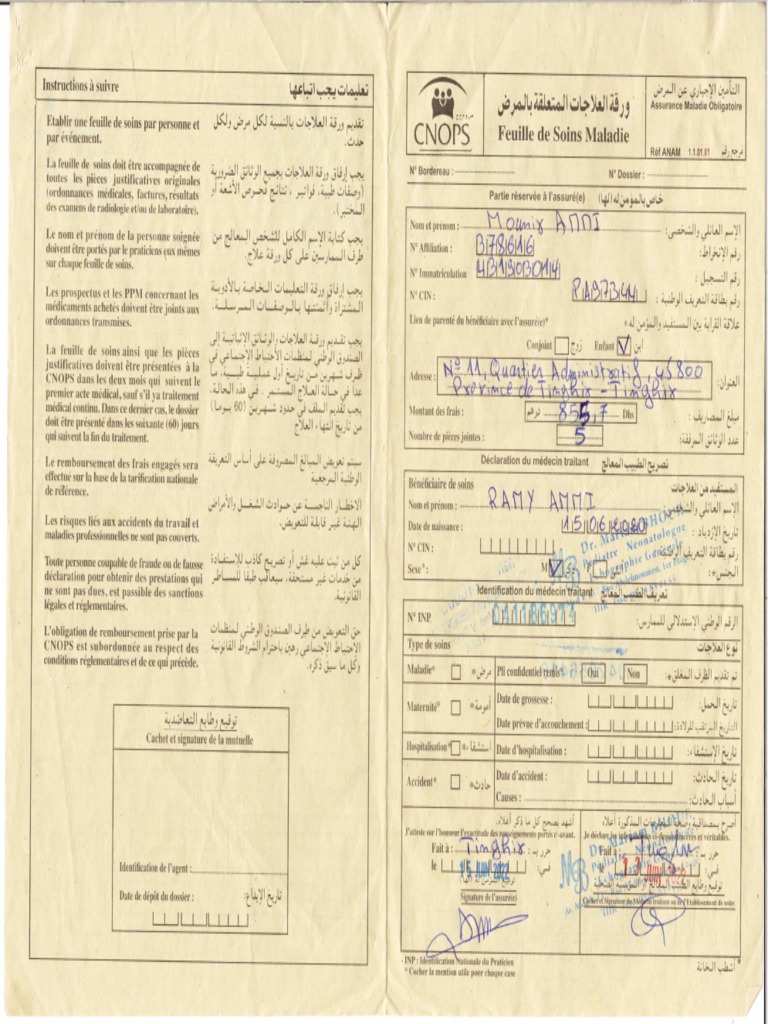 Instructions à suivre
تعليمات يجب اتباعها
Etablir une feuille de soins par personne et
par événement.
تقديم ورقة العلاجات بالنسبة لكل مرض ولكل
حدث.
La feuille de soins doit être accompagnée de
toutes les pièces justificatives originales
(ordonnances médicales, factures, résultats
des examens de radiologie et/ou de laboratoire).
يجب إرفاق ورقة العلاجات بجميع الوثائق الضرورية
(وصفات طبية، فواتير، نتائج فحوص الأشعة أو
المختبر).
Le nom et prénom de la personne soignée
doivent être portés par le praticien eux mêmes
sur chaque feuille de soins.
يجب كتابة الإسم الكامل للشخص المعالج من
طرف الممارسين على كل ورقة علاج.
Les prospectus et les PPM concernant les
médicaments achetés doivent être joints aux
ordonnances transmises.
يجب إرفاق ورقة التعليمات الخاصة بالأدوية
المشتراة وأثمنتها بالوصفات المرسلة.
La feuille de soins ainsi que les pièces
justificatives doivent être présentées à la
CNOPS dans les deux mois qui suivent le
premier acte médical, sauf s'il ya traitement
médical continu. Dans ce dernier cas, le dossier
doit être présenté dans les soixante (60) jours
qui suivent la fin du traitement.
يجب تقديم ورقة العلاجات والوثائق الاثباتية إلى
الصندوق الوطني لمنظمات الاحتياط الاجتماعي في
ظرف شهرين من تاريخ أول عملية طبية، ما
عدا في حالة العلاج المستمر. في هذه الحالة،
يجب تقديم الملف في حدود شهرين (60 يوما)
من تاريخ انتهاء العلاج
Le remboursement des frais engagés sera
effectué sur la base de la tarification nationale
de référence.
سيتم تعويض المبالغ المصروفة على أساس التعريفة
الوطنية المرجعية
Les risques liés aux accidents du travail et
maladies professionnelles ne sont pas couverts.
الاخطار الناجمة عن حوادث الشغل والأمراض
المهنية غير قابلة للتعويض.
Toute personne coupable de fraude ou de fausse
déclaration pour obtenir des prestations qui
ne sont pas dues, est passible des sanctions
légales et réglementaires.
كل من ثبت عليه غش أو تصريح كاذب للاستفادة
من خدمات غير مستحقة، سيعاقب طبقا للمساطر
القانونية.
L'obligation de remboursement prise par la
CNOPS est subordonnée au respect des
conditions réglementaires et de ce qui précède.
حق التعويض من طرف الصندوق الوطني لمنظمات
الاحتياط الاجتماعي رهين باحترام الشروط القانونية
وكل ما سبق ذكره.
توقيع وطابع التعاضدية
Cachet et signature de la mutuelle
Identification de l'agent :
Date de dépôt du dossier :
تاريخ الإيداع:
CNOPS
ورقة العلاجات المتعلقة بالمرض
Feuille de Soins Maladie
التأمين الإجباري عن المرض
Assurance Maladie Obligatoire
Réf ANAM 1.1.01.01 مرجع رقم
N° Bordereau :
N° Dossier :
Partie réservée à l'assuré(e) خاص بالمؤمن له (لها)
Nom et prénom : Mounir AMMI الإسم العائلي والشخصي:
N° Affiliation : B78616 رقم الإنخراط:
N° Immatriculation HB1903014 رقم التسجيل :
N° CIN : PA97344 رقم بطاقة التعريف الوطنية :
Lien de parenté du bénéficiaire avec l'assuré(e)* علاقة القرابة بين المستفيد والمؤمن له*
Conjoint زوج Enfant ابن
Adresse : N° 11, Quartier Administratif, 45800 العنوان:
Province de Tinghir - Tinghir
Montant des frais : 855,7 درهم Dhs مبلغ المصاريف :
Nombre de pièces jointes : 5 عدد الوثائق المرفقة:
Déclaration du médecin traitant تصريح الطبيب المعالج
Bénéficiaire de soins المستفيد من العلاجات
Nom et prénom : RAMY AMMI الإسم العائلي والشخصي
Date de naissance : 15 06 2020 تاريخ الإزدياد :
N° CIN : رقم بطاقة التعريف الوطنية
Sexe* : M F الجنس*:
Pédiatre Néonatologue
Echographie Générale
Identification du médecin traitant تعريف الطبيب المعالج
N° INP 041186974 الرقم الوطني الإستدلالي للممارس:
Type de soins نوع العلاجات
Maladie* مرض* Pli confidentiel remis* Oui Non تم تقديم الظرف المغلق*:
Maternité* أمومة* Date de grossesse : تاريخ الحمل:
Date prévue d'accouchement : التاريخ المرتقب للولادة:
Hospitalisation* استشفاء* Date d'hospitalisation : تاريخ الإستشفاء:
Accident* حادث* Date d'accident : تاريخ الحادث:
Causes : أسباب الحادث:
أشهد بصحح كل ما ذكر أعلاه.
J'atteste sur l'honneur l'exactitude des renseignements portés ci-avant.
Fait à : Tinghir حرر بـ :
le 15 JUIN 2022 في:
Signature de l'assuré(e)
Je déclare les informations ci-dessus sincères et véritables.
Fait à : حرر بـ :
Cachet et Signature du Médecin traitant ou de l'Etablissement de soins
- INP : Identification Nationale du Praticien
* Cocher la mention utile pour chaque case
* أشطب الخانة